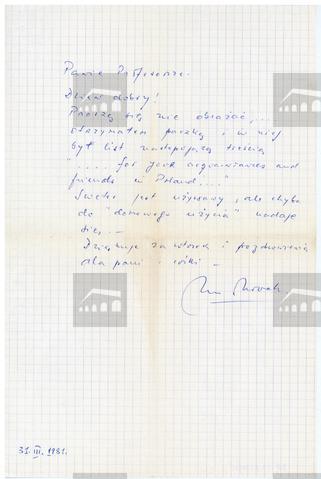 Panie Profesorze.
Dzień dobry!
Proszę się nie obrażać,...
otrzymałem paczkę i w niej
był list następującej treścią
"..... for your acquaintances and
friends in Poland...."
Sweter jest używany, ale chyba
do "domowego użycia" nadaje
się. –
Dziękuję za wtorek i pozdrowienia
dla pani i córki –
Nowak
31. III. 1981.